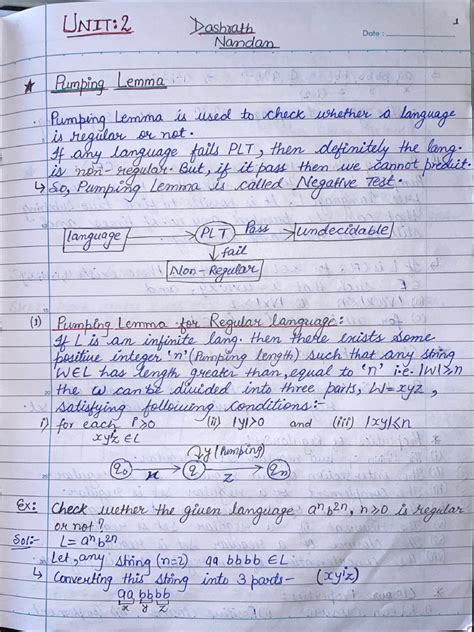 UNIT:2 Dashrath Nandan Date: 1
Pumping Lemma
Pumping Lemma is used to check whether a language
is regular or not.
If any language fails PLT, then definitely the lang.
is non-regular. But, if it pass then we cannot predict.
↳ So, Pumping Lemma is called Negative Test.
language → PLT Pass → Undecidable
↓ fail
Non-Regular
(1) Pumping Lemma for Regular language:
If L is an infinite lang. then there exists some
positive integer 'n' (Pumping length) such that any string
WEL has length greater than, equal to 'n' i.e. |W|≥n
the ω can be divided into three parts, W=xyz,
satisfying following conditions:-
i) for each i≥0 (ii) |y|>0 and (iii) |xy|≤n
xyⁱz ∈L
y (Pumping)
q₀ x → q z → qn
Ex: Check wether the given language aⁿb²ⁿ, n≥0 is regular
or not?
Sol:- L= aⁿb²ⁿ
Let, any string (n=2) aa bbbb ∈L
↳ Converting this string into 3 parts- (xyⁱz)
aa bbbb
x y z
1